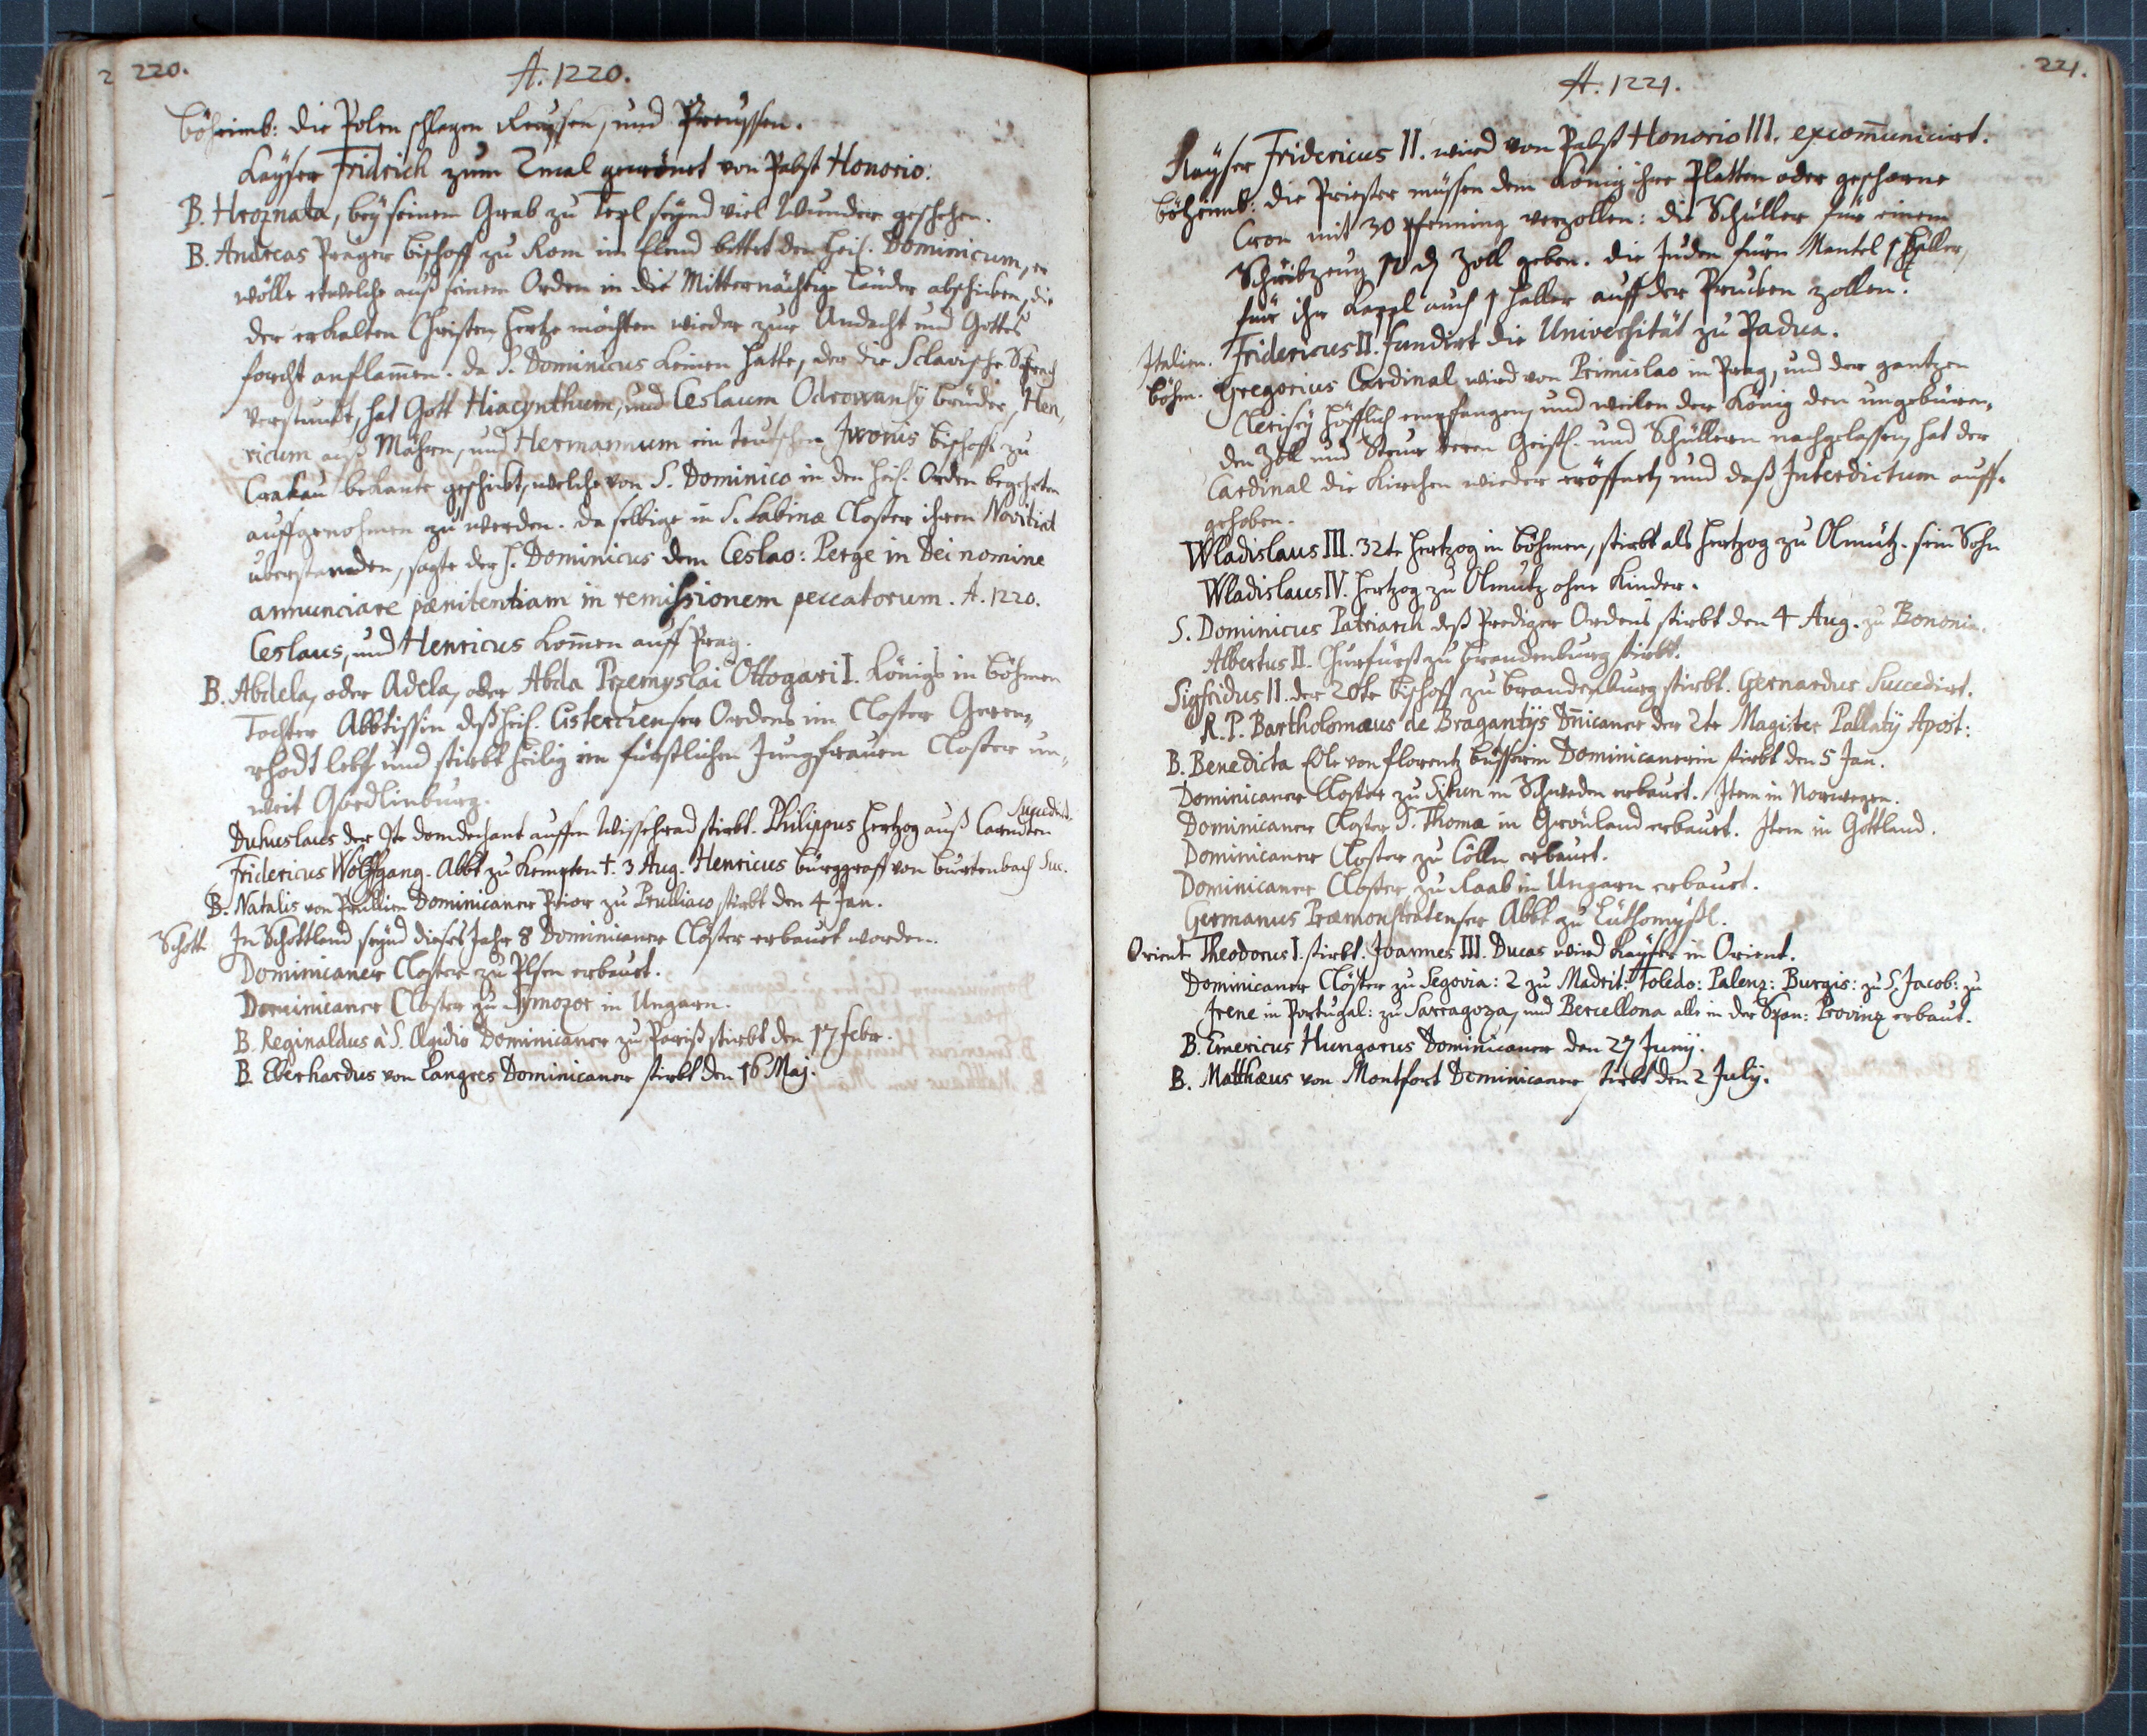 220.
A. 1220.
Böheimb: die Polen schlagen Reussen, und Preussen.
Kayser Fridrich zum 2mal gecrönet von Pabst Honorio.
B. Hroznata, bey seinem Grab zu Tepl seynd viel Wunder geschehen.
B. Andreas Prager Bischoff zu Rom im Elend bittet den Heil. Dominicum, er
wölle etwelche auß seinem Orden in die Mitternächtige Länder abschicken, die
der erkalten Christen Hertze möchten wieder zur Andacht und Gottes
forcht anflam̄en. da S. Dominicus keinen hatte, der die Sclavische Sprach
verstundt, hat Gott Hiacynthum, und Ceslaum Odrowansÿ brüder, Hen,
ricum auß Mähren, und Hermannum ein teutschen Jvonis Bischoffs zu
Crakau bekante geschickt, welche von S. Dominico in den heil. Orden begehrten
auffgenohmen zu werden. da selbige in S. Sabinæ Closter ihren Novitiat
überstanden, sagte der H. Dominicus dem Ceslao: Perge in Dei nomine
annunciare pænitentiam in remissionem peccatorum. A. 1220.
Ceslaus, und Henricus kom̄en auff Prag.
B. Abdela, oder Adela, oder Abda Przemyslai Ottogari I. Königs in Böhmen
Tochter Abbtissin deß heil. Cistercienser Ordens im Closter Geren,
rhodt lebt und stirbt heilig im fürstlichen Jungfrauen Closter un,
weit Quedlinburg.
Succedirt.
der Jte domdechant auffm Wissehrad stirbt. Philippus Hertzog auß Carndten
Fridericus Wolffgang. Abbt zu Kempten †. 3 Aug. Henricus Burggraff von Burtenbach Suc.
B. Natalis von Prullien Dominicaner Prior zu Prulliaco stirbt den 4 Jan.
Schott. In Schottland seynd dieses Jahr 8 Dominicaner Clöster erbauet worden.
Dominicaner Closter zu Plsen erbauet.
Dominicaner Closter zu Symozor in Ungarn.
B. Reginaldus à S. Ægidio Dominicaner zu Pariß stirbt den 17 Febr.
B. Eberhardus von Langres Dominicaner stirbt den 16 Maj.
221.
A. 1221.
Kayser Fridericus II. wird von Pabst Honorio III. excom̄unicirt.
Böheimb: die Priester müssen dem König ihre Platten oder geschorne
Cron mit 30 Pfenning verzollen: die Schüller für einem
Schreibzeug 10 d Zoll geben. die Juden fürn Mantel 1 Haller,
für ihr Kappl auch 1 Haller auff der Prucken zollen.
Italien. Fridericus II. fundirt die Universität zu Padua.
Böhm. Gregorius Cardinal wird von Primislao in Prag, und der gantzen
Clerisey höfflich empfangen, und weilen der König den ungebüren,
den Zoll und Steur deren Geistl. und Schüllern nachgelassen, hat der
Cardinal die Kirchen wieder eröffnet, und daß Interdictum auff,
gehoben.
Wladislaus III. 32te Hertzog in Böhmen, stirbt als Hertzog zu Olmütz. sein Sohn
Wladislaus IV. Hertzog zu Olmutz ohne Kinder.
S. Dominicus Patriarch deß Prediger Ordens stirbt den 4 Aug. zu Bononia.
Albertus II. Churfürst zu Brandenburg stirbt.
Sigfridus II. der 20te Bischoff zu Brandenburg stirbt. Gernardus Succedirt.
R. P. Bartholomæus de Bragantijs Dn̄icaner der 2te Magister Pallatij Apost:
B. Benedicta Edle von Florentz büsserin Dominicanerin stirbt den 5 Jan.
Dominicaner Closter zu Situn in Schweden erbauet. Item in Norwegen.
Dominicaner Closter S. Thomæ in Grönland erbauet. Item in Gottland.
Dominicaner Closter zu Cölln erbauet.
Dominicaner Closter zu Raab in Ungarn erbauet.
Germanus Præmonstratenser Abbt zu Luthomyßl.
Orient Theodorus I. stirbt. Joannes III. Ducas wird Kayser in Orient.
Dominicaner Clöster zu Segovia: 2 zu Madrit: Toledo: Palenz: Burgis: zu S. Jacob: zu
Irene in Portugal: zu Sarragoza, und Bercellona alle in der Span: Provinz erbaut.
B. Emericus Hungarus Dominicaner den 27 Junij.
B. Matthæus von Montfort Dominicaner stirbt den 2 Julij.